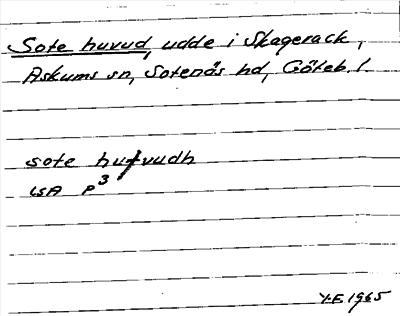 Sote huvud, udde i Skagerack,
Askums sn, Sotenäs hd, Göteb. l.
sote hufvudh
LSA P3
Y.E. 1965